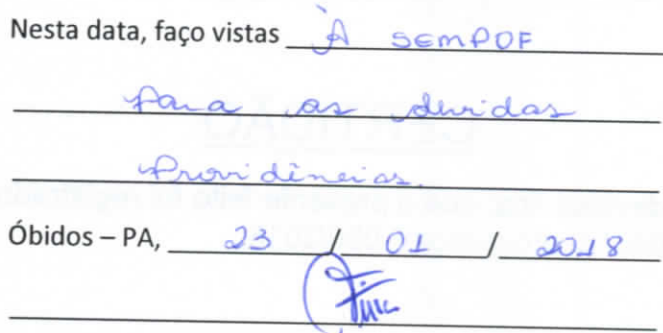 Nesta data, faço vistas À SEMPOF
para as devidas
Providências.
Óbidos – PA, 23 / 01 / 2018